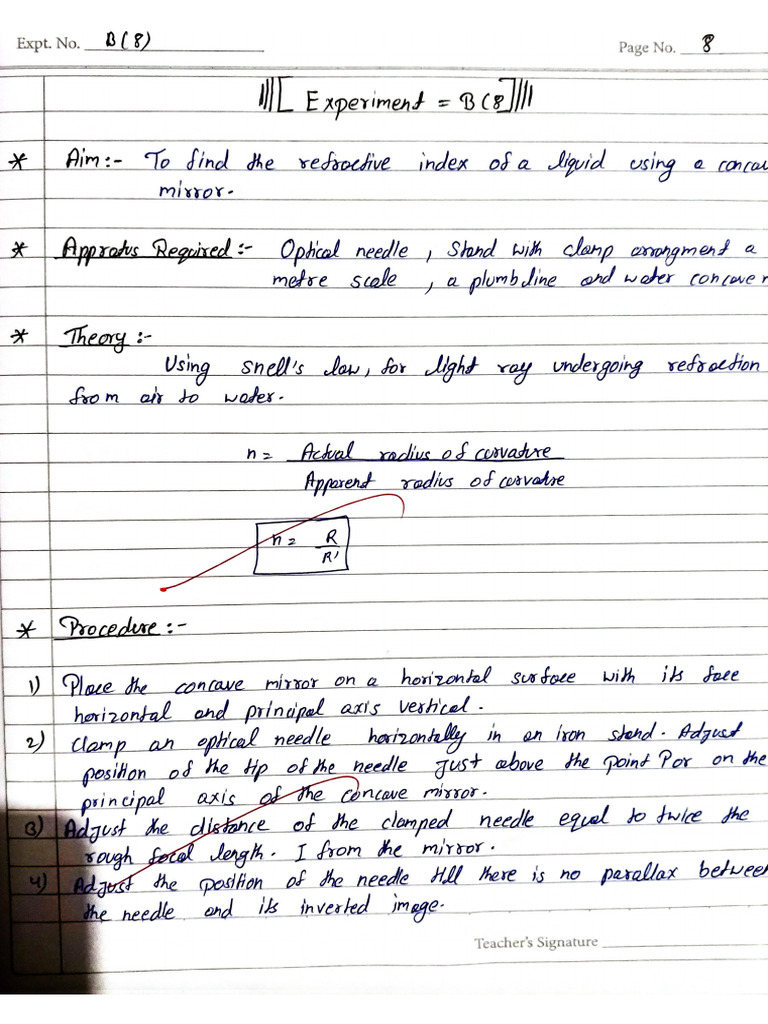 Expt. No. B(8)
Page No. 8
Experiment = B(8)
* Aim:- To find the refractive index of a liquid using a concav
mirror.
* Appratus Required:- Optical needle, Stand with clamp arrangment a
metre scale, a plumbline and water concave m
* Theory:-
Using snell's law, for light ray undergoing refraction
from air to water.
n = Actual radius of curvature
Apparend radius of curvature
n = R
R'
* Procedure:-
1) Place the concave mirror on a horizontal surface with its face
horizontal and principal axis vertical.
2) Clamp an optical needle horizontally in an iron stand. Adjust
position of the tip of the needle just above the point P or on the
principal axis of the concave mirror.
3) Adjust the distance of the clamped needle equal to twice the
rough focal length. I from the mirror.
4) Adjust the position of the needle till there is no parallax between
the needle and its inverted image.
Teacher's Signature